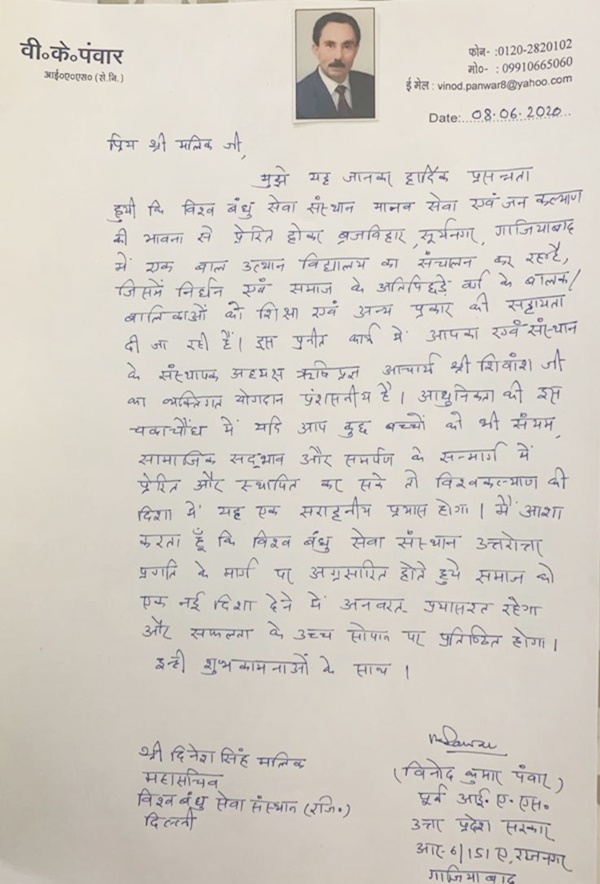 वी॰के॰पंवार
आई॰ए॰एस॰ (से.नि.)
फोन- :0120-2820102
मो०- : 09910665060
ई मेल : vinod.panwar8@yahoo.com
Date: 08.06.2020
प्रिय श्री मलिक जी,
मुझे यह जानकर हार्दिक प्रसन्नता
हुयी कि विश्व बंधु सेवा संस्थान मानव सेवा एवं जन कल्याण
की भावना से प्रेरित होकर बृजविहार, सूर्यनगर, गाजियाबाद
में एक बाल उत्थान विद्यालय का संचालन कर रहा है,
जिसमें निर्धन एवं समाज के अतिपिछड़े वर्ग के बालक/
बालिकाओं को शिक्षा एवं अन्य प्रकार की सहायता
दी जा रही है। इस पुनीत कार्य में आपका एवं संस्थान
के संस्थापक अध्यक्ष ऋषि आचार्य श्री शिवांश जी
का व्यक्तिगत योगदान प्रशंसनीय है। आधुनिकता की इस
चकाचौंध में यदि आप कुछ बच्चों को भी संयम,
सामाजिक सद्भाव और समर्पण के सन्मार्ग में
प्रेरित और स्थापित कर सके तो विश्वकल्याण की
दिशा में यह एक सराहनीय प्रयास होगा। मैं आशा
करता हूँ कि विश्व बंधु सेवा संस्थान उत्तरोत्तर
प्रगति के मार्ग पर अग्रसारित होते हुये समाज को
एक नई दिशा देने में अनवरत प्रयासरत रहेगा
और सफलता के उच्च सोपान पर प्रतिष्ठित होगा।
इन्ही शुभकामनाओं के साथ।
श्री दिनेश सिंह मलिक
महासचिव
विश्व बंधु सेवा संस्थान (रजि.)
दिल्ली
(विनोद कुमार पंवार)
पूर्व आई.ए.एस.
उत्तर प्रदेश सरकार
आर-6/151 ए, राजनगर
गाजियाबाद